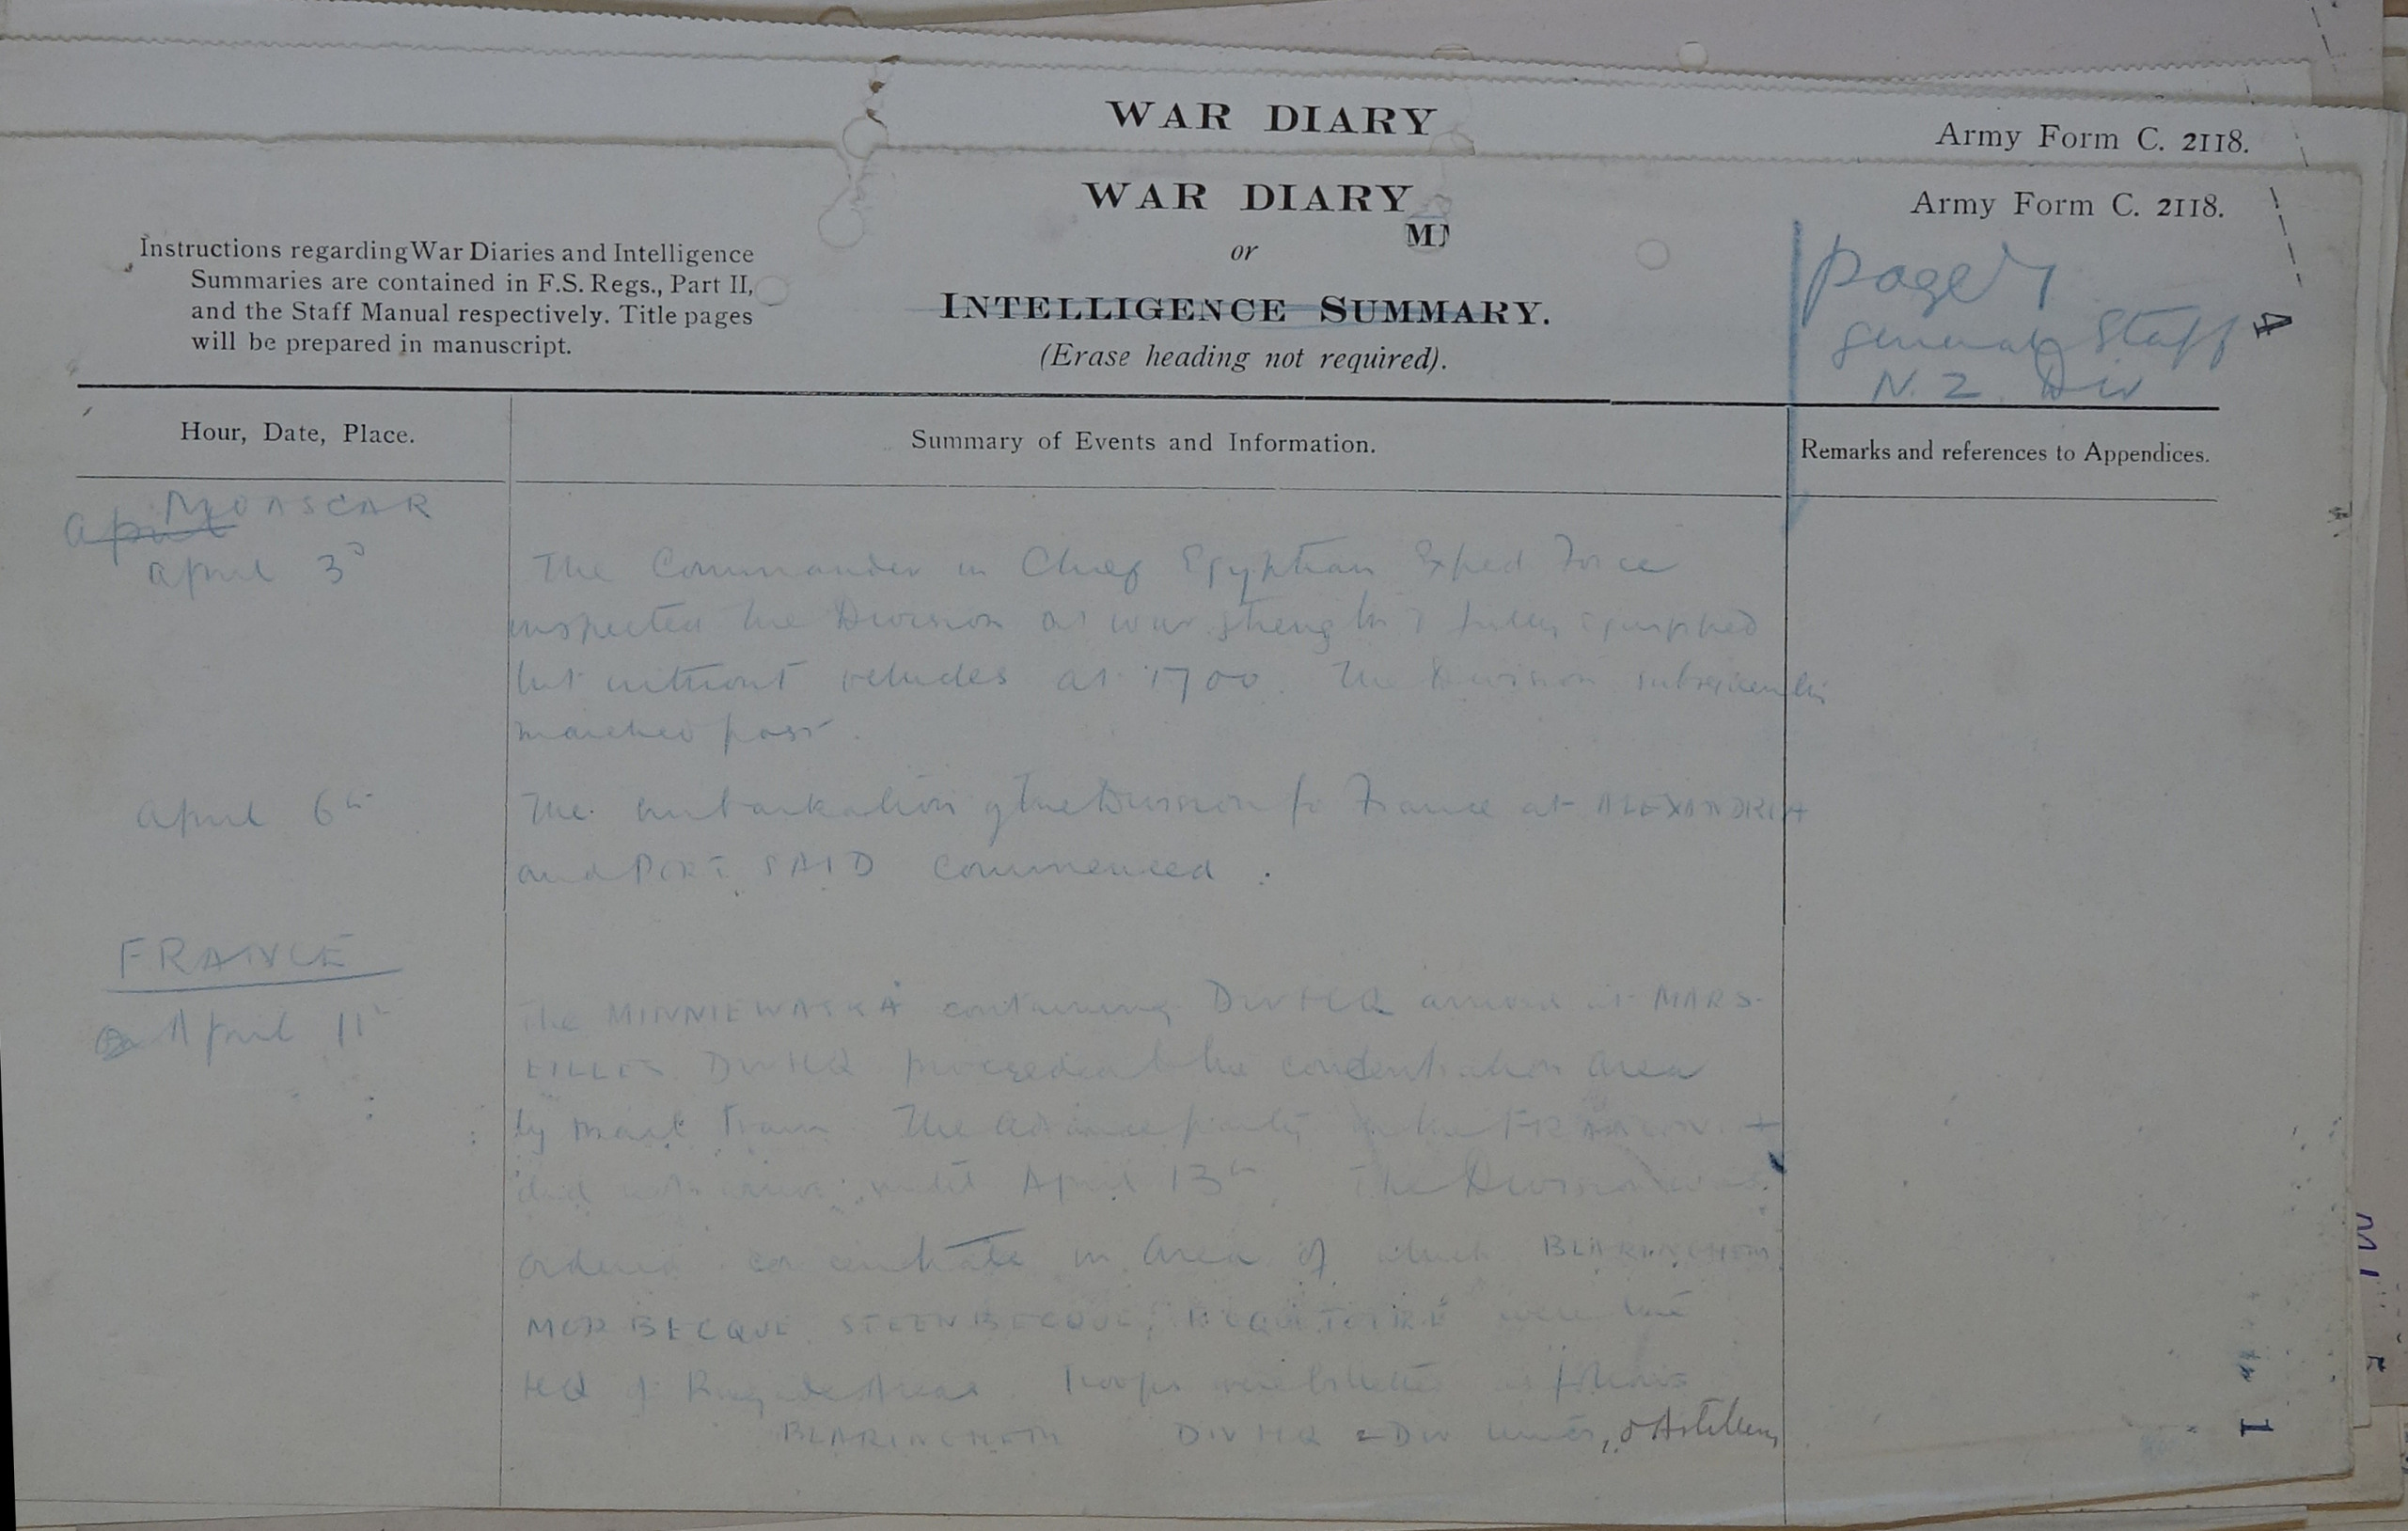 WAR DIARY
Army Form C. 2118.
WAR DIARY
or
INTELLIGENCE SUMMARY.
(Erase heading not required).
Army Form C. 2118.
Instructions regarding War Diaries and Intelligence
Summaries are contained in F.S. Regs., Part II,
and the Staff Manual respectively. Title pages
will be prepared in manuscript.
page 1
General Staff
N.Z. Div
Hour, Date, Place.
Summary of Events and Information.
Remarks and references to Appendices.
MOASCAR
April
April 3d
The Commander in Chief Egyptian Exped Force
inspected the Division at war strength & fully equipped
but without vehicles at 1700. The Division subsequently
marched past.
April 6th
The embarkation of the Division for France at ALEXANDRIA
and PORT SAID commenced.
FRANCE
April 11th
The MINNIEWASKA containing Div HQ arrived at MARS-
EILLES. Div HQ proceeded to the concentration area
by mail train. The advance party in the
did not arrive until April 13th. The Division was
ordered concentrate in area of which BLARINGHEM
MORBECQUE STEENBECQUE, ROQUETOIRE were the
HQ of Brigade Areas Troops were billeted as follows
BLARINGHEM Div HQ & Div units, & Artillery